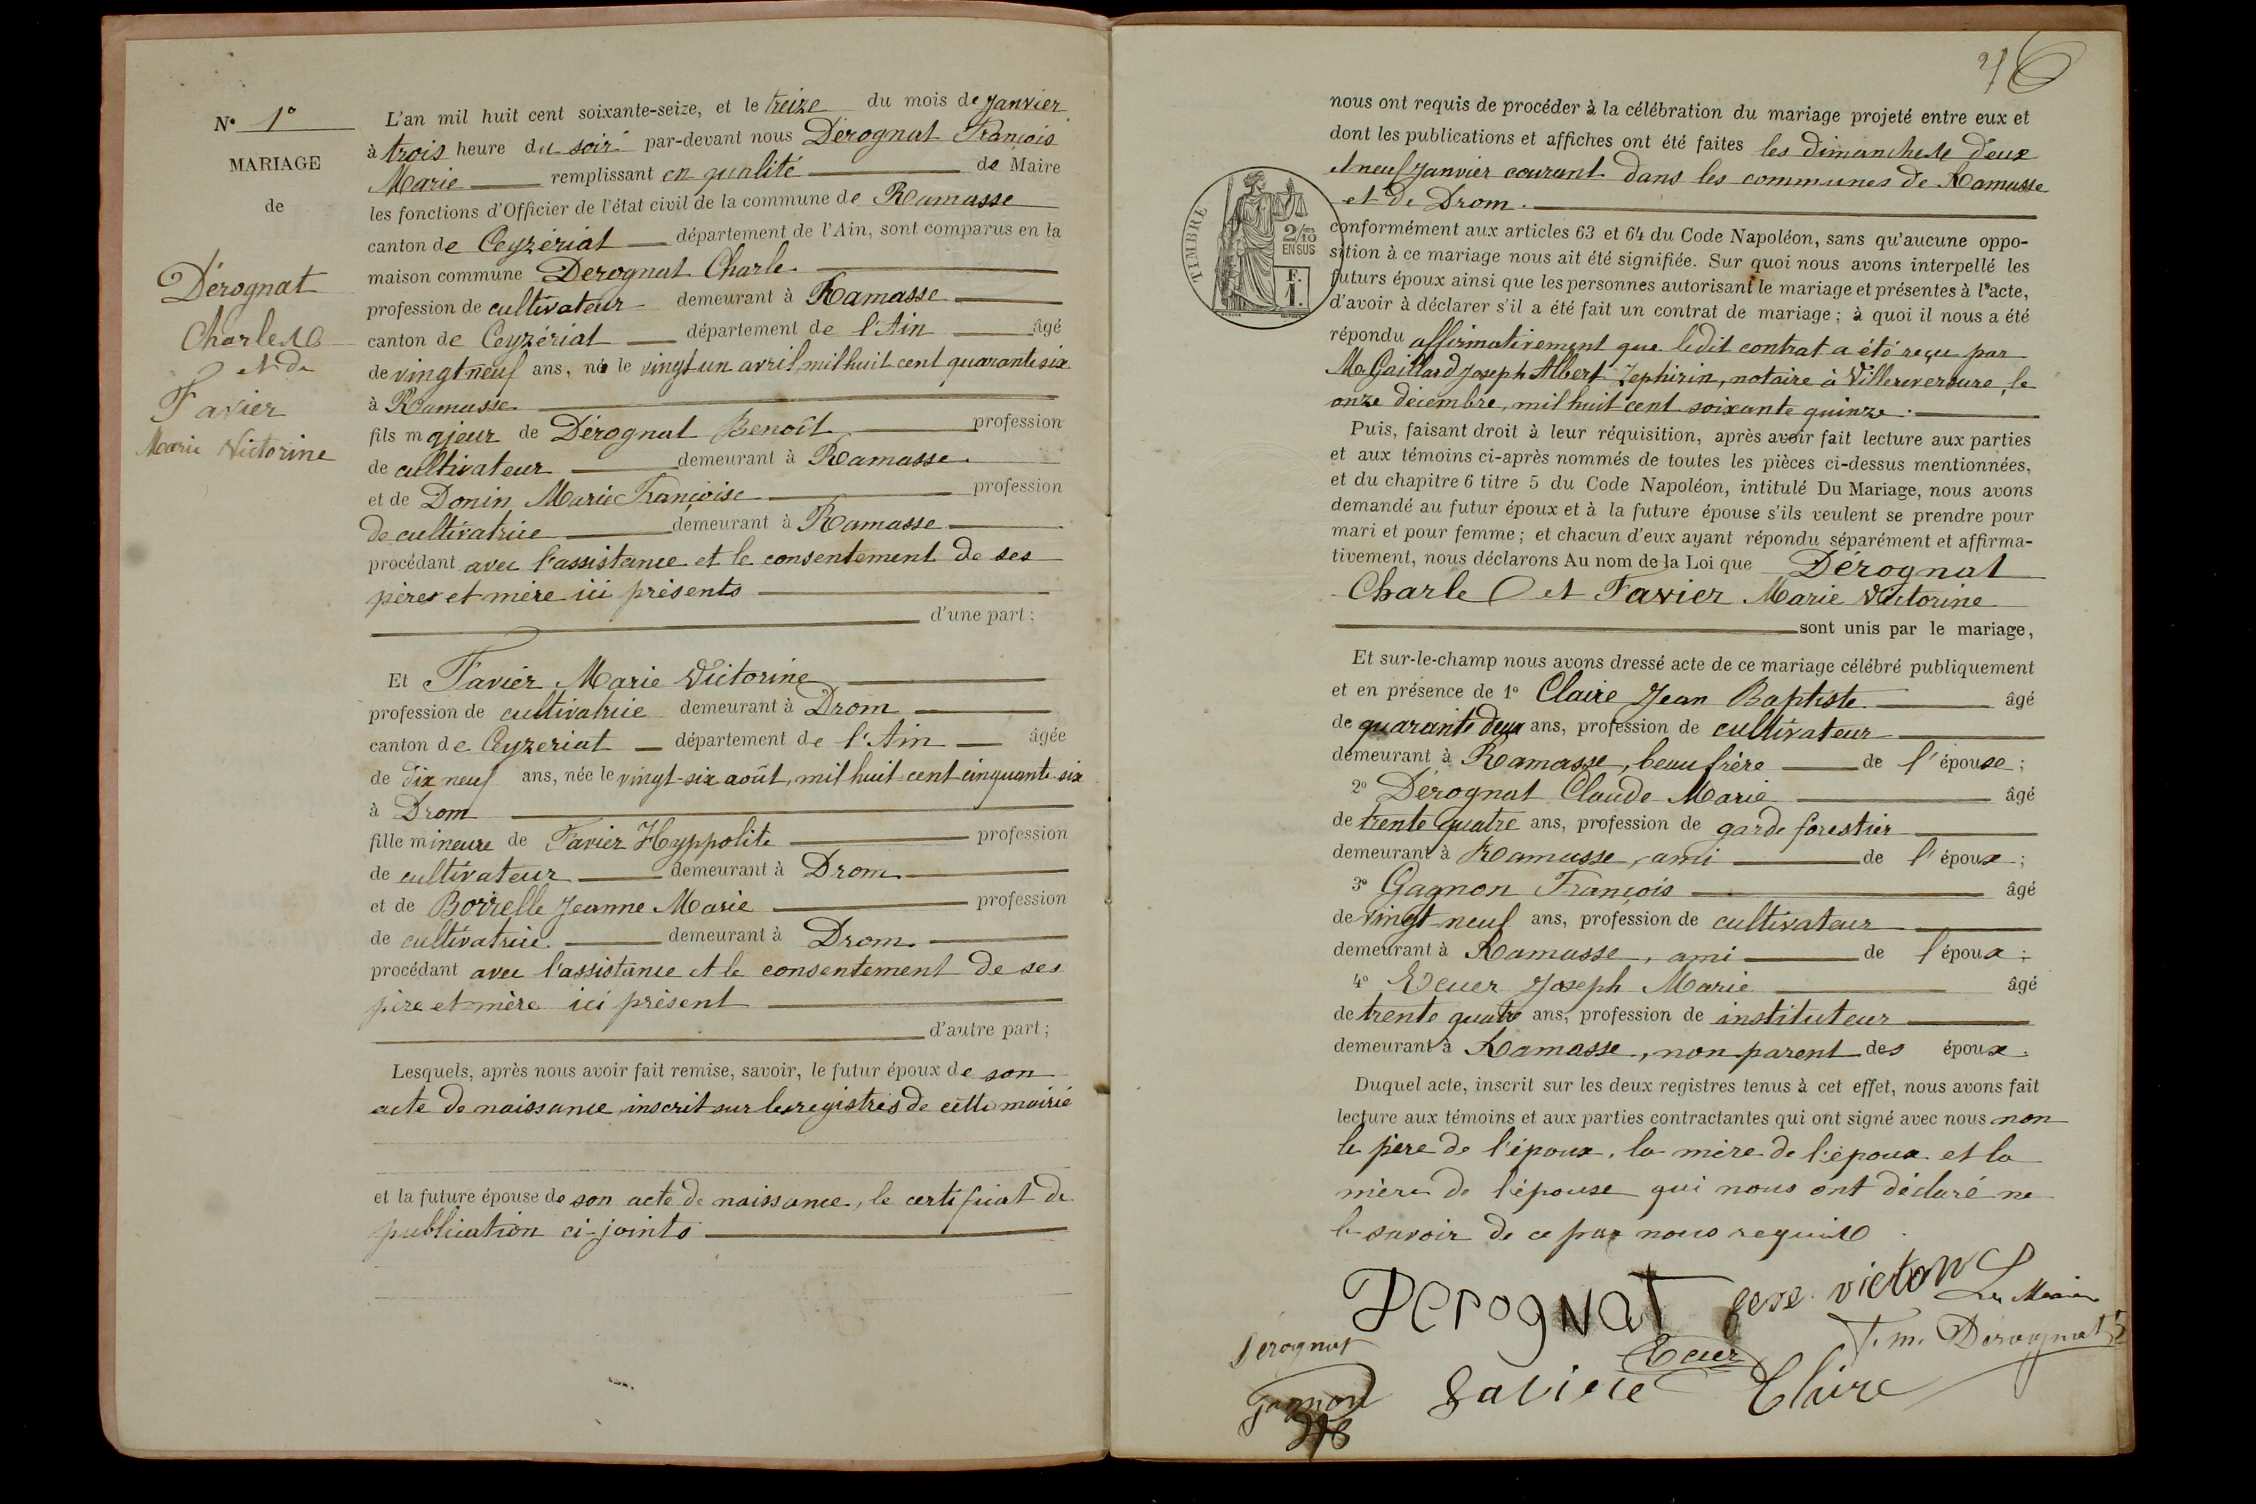 N° 1°
MARIAGE
de
Dérognat
Charle
et de
Favier
Marie Victorine
L'an mil huit cent soixante-seize, et le treize du mois de Janvier
à trois heure du soir par-devant nous Dérognat François
Marie remplissant en qualité de Maire
les fonctions d'Officier de l'état civil de la commune de Ramasse
canton de Ceyzériat département de l'Ain, sont comparus en la
maison commune Derognat Charle
profession de cultivateur demeurant à Ramasse
canton de Ceyzériat département de l'Ain âgé
de vingt neuf ans, né le vingt un avril mil huit cent quarante six
à Ramasse
fils majeur de Dérognat Benoît profession
de cultivateur demeurant à Ramasse.
et de Donin Marie Françoise profession
de cultivatrice demeurant à Ramasse
procédant avec l'assistance et le consentement de ses
pères et mère ici présents
d'une part;
Et Favier Marie Victorine
profession de cultivatrice demeurant à Drom
canton de Ceyzeriat département de l'Ain âgée
de dix neuf ans, née le vingt-six août, mil huit-cent cinquante-six
à Drom
fille mineure de Favier Hyppolite profession
de cultivateur demeurant à Drom
et de Borrelle Jeanne Marie profession
de cultivatrice. demeurant à Drom.
procédant avec l'assistance et le consentement de ses
père et mère ici présent
d'autre part;
Lesquels, après nous avoir fait remise, savoir, le futur époux de son
acte de naissance, inscrit sur les registres de cette mairie
et la future épouse de son acte de naissance, le certificat de
publication ci-joints
76
nous ont requis de procéder à la célébration du mariage projeté entre eux et
dont les publications et affiches ont été faites les dimanches deux
et neuf Janvier courant dans les communes de Ramasse
et de Drom.
TIMBRE
2/10
EN SUS
F.
1.
conformément aux articles 63 et 64 du Code Napoléon, sans qu'aucune oppo-
sition à ce mariage nous ait été signifiée. Sur quoi nous avons interpellé les
futurs époux ainsi que les personnes autorisant le mariage et présentes à l'acte,
d'avoir à déclarer s'il a été fait un contrat de mariage; à quoi il nous a été
répondu affirmativement que ledit contrat a été reçu par
Me Gaillard Joseph Albert Zephirin, notaire à Villereversure, le
onze décembre, mil huit cent soixante quinze.
Puis, faisant droit à leur réquisition, après avoir fait lecture aux parties
et aux témoins ci-après nommés de toutes les pièces ci-dessus mentionnées,
et du chapitre 6 titre 5 du Code Napoléon, intitulé Du Mariage, nous avons
demandé au futur époux et à la future épouse s'ils veulent se prendre pour
mari et pour femme; et chacun d'eux ayant répondu séparément et affirma-
tivement, nous déclarons Au nom de la Loi que Dérognat
Charle et Favier Marie Victorine
sont unis par le mariage,
Et sur-le-champ nous avons dressé acte de ce mariage célébré publiquement
et en présence de 1° Claire Jean Baptiste âgé
de quarante deux ans, profession de cultivateur
demeurant à Ramasse, beau frère de l'épouse;
2° Dérognat Claude Marie âgé
de trente quatre ans, profession de garde forestier
demeurant à Ramasse, ami de l'époux;
3° Gagnon François âgé
de vingt-neuf ans, profession de cultivateur
demeurant à Ramasse, ami de l'époux;
4° Joseph Marie âgé
de trente quatre ans, profession de instituteur
demeurant à Ramasse, non parent des époux.
Duquel acte, inscrit sur les deux registres tenus à cet effet, nous avons fait
lecture aux témoins et aux parties contractantes qui ont signé avec nous non
le père de l'époux, la mère de l'époux et la
mère de l'épouse qui nous ont déclaré ne
le savoir de ce par nous requis
Derognat
Le Maire
Derognat
F. m. Derognat
Gagnon
Claire